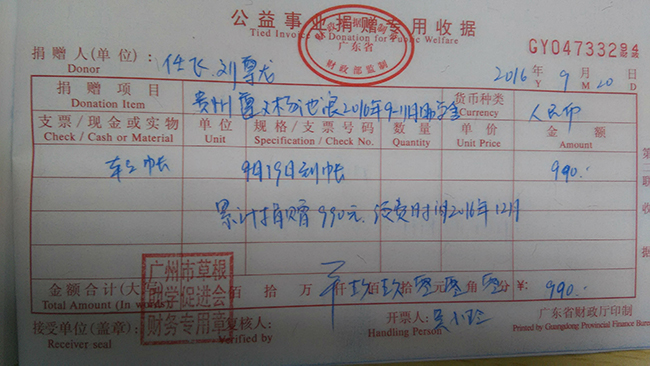 公益事业捐赠专用收据
Tied Invoice Donation for Public Welfare
广东省
财政部监制
GY04733294
捐赠人(单位): 任飞、刘尊龙
Donor
2016 年 9 月 20 日
Y M D
捐赠项目 贵州 2016年9-11月 货币种类 人民币
Donation Item Currency
支票/现金或实物 单位 规格/支票号码 数量 单价 金额
Check / Cash or Material Unit Specification / Check No. Quantity Unit Price Amount
9月19日到帐 990.-
累计捐赠990元, 2016年12月
金额合计(大 佰 拾 万 仟 玖佰 玖拾 零元 零角 零分 ¥: 990.-
Total Amount (In words)
广州市草根
助学促进会
财务专用章
接受单位(盖章): 复核人: 开票人: 吴小玲 广东省财政厅印制
Receiver seal Verified by Handling Person Printed by Guangdong Provincial Finance Bureau
第
联
收
据